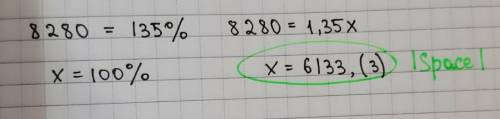 8280 = 135%
8280 = 1,35x
x = 100%
x = 6133,(3)
|Space|